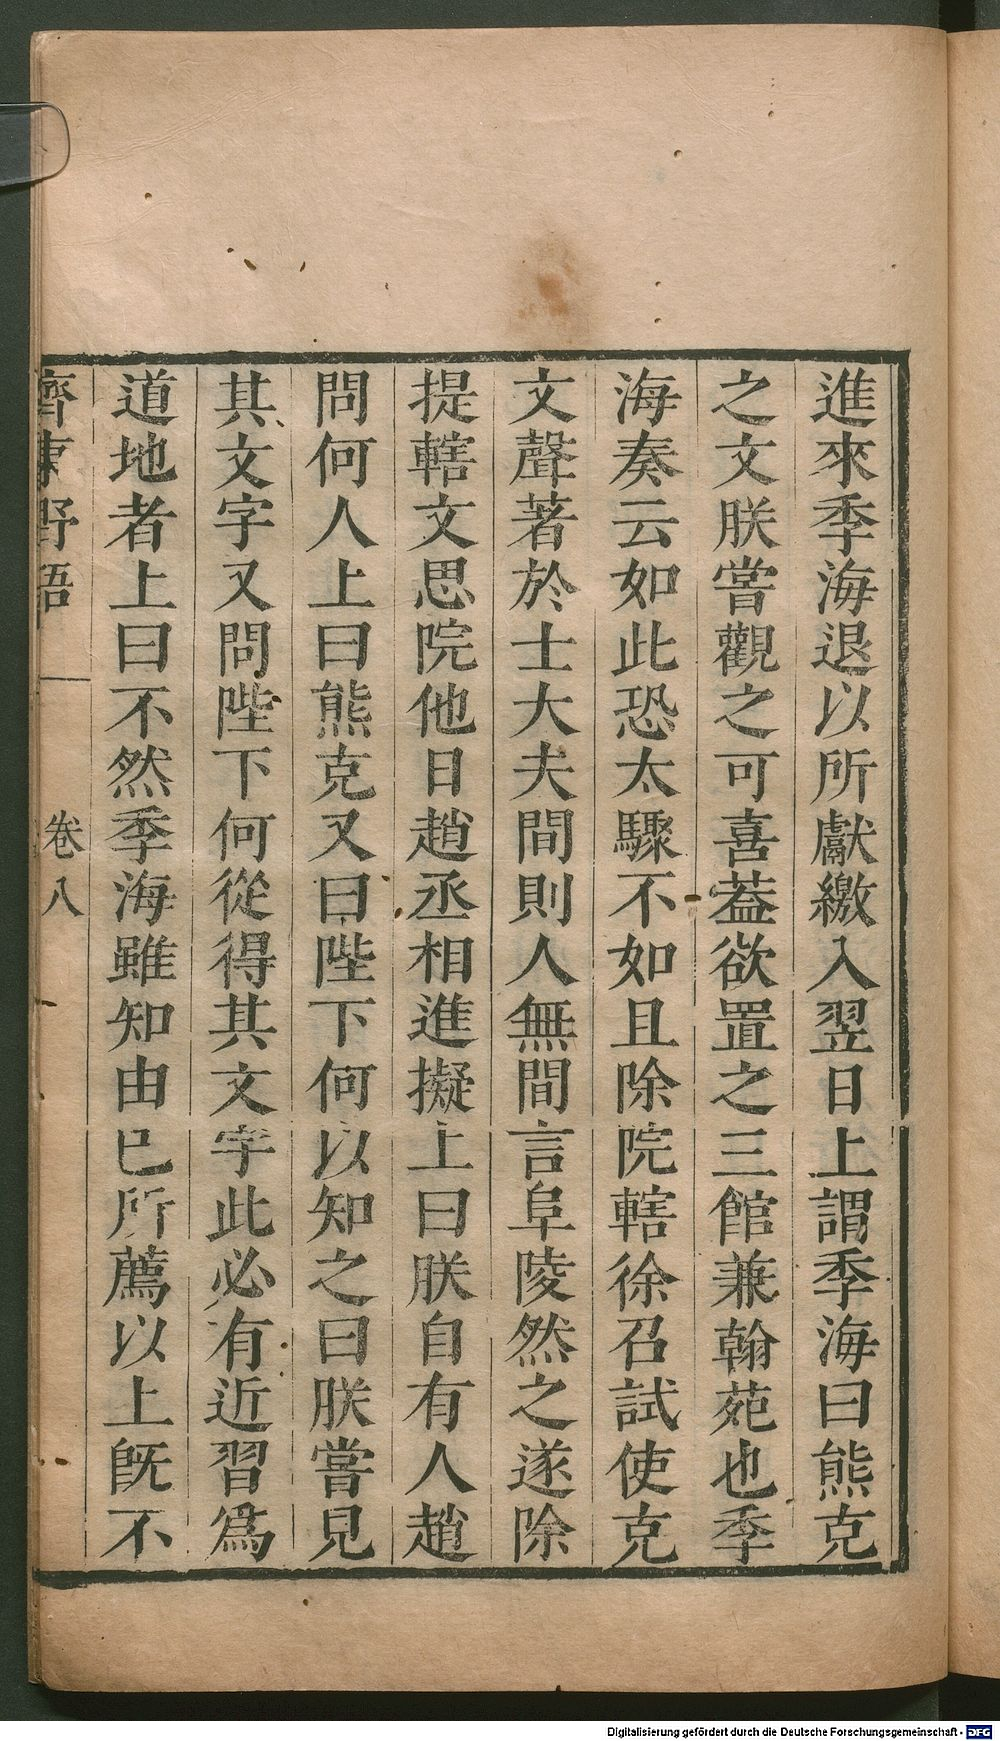 進來季海退以所獻繳入翌日上謂季海曰熊克
之文朕嘗觀之可喜葢欲置之三館兼翰苑也季
海奏云如此恐太驟不如且除院轄徐召試使克
文聲著於士大夫間則人無間言阜陵然之遂除
提轄文思院他日趙丞相進擬上曰朕自有人趙
問何人上曰熊克又曰陛下何以知之曰朕嘗見
其文字又問陛下何從得其文字此必有近習爲
道地者上曰不然季海雖知由已所薦以上旣不
齊東野語 卷八
Digitalisierung gefördert durch die Deutsche Forschungsgemeinschaft - DFG